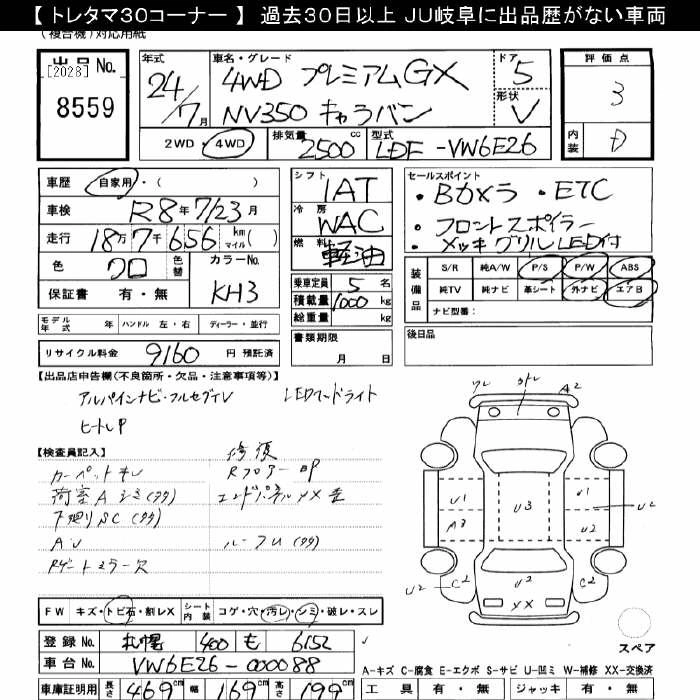 【 トレタマ30コーナー 】 過去30日以上 JU岐阜に出品歴がない車両
(複合機)対応用紙
出品 No.
[2028]
8559
年式
24/7月
車名・グレード
4WD プレミアムGX
NV350 キャラバン
ドア
5
形状
V
評価点
3
内装
D
2WD・4WD
排気量
2500cc
型式
LDF-VW6E26
車歴 自家用・( )
車検 R8年7/23月
走行 18万7千656 km マイル( )
色 クロ 色替 カラーNo. KH3
保証書 有・無
シフト
1AT
冷房
WAC
燃料
軽油
乗車定員 5 名
積載量 1000 kg
総重量 kg
セールスポイント
・Bカメラ ・ETC
・フロントスポイラー
・メッキグリルLED付
装備品
S/R 純A/W P/S P/W ABS
純TV 純ナビ 革シート 外ナビ エアB
ナビ型番:
モデル年式 年 ハンドル 左・右 ディーラー・並行
リサイクル料金 9160 円 預託済
書類期限
月 日
後日品
【出品店申告欄(不良箇所・欠品・注意事項等)】
アルパインナビ・フルセグTV LEDヘッドライト
ヒートレP
【検査員記入】
修復
カーペットキレ
Rフロアー
荷室A シミ(タタ)
エンドパネルXX
下廻りSC(タタ)
AU
ルーフU(タタ)
Rゲートミラー欠
A2
U1
A3
U3
U1
U2
U2
U2
C2
U2
XX
C2
FW キズ・トビ石・割レX シート内装 コゲ・穴・汚レ・シミ・破レ・スレ
登録 No. 札幌 400 も 6152
車台 No. VW6E26-000088
車庫証明用 長さ 469cm 幅 169cm 高さ 199cm
スペア
A-キズ C-腐食 E-エクボ S-サビ U-凹ミ W-補修 XX-交換済
工具 有・無 ジャッキ 有・無